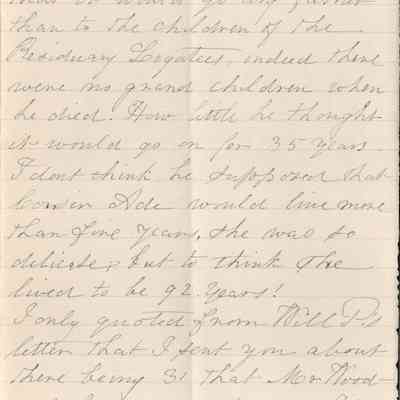 than to the children of the
Residuary Legatees, indeed there
were no grand children when
he died! How little he thought
it would go on for 35 years.
I dont think he supposed that
Cousin Ade would live more
than five years, she was so
delicate; but to think she
lived to be 92 years!
I only quoted from Will P's
letter that I sent you about
there being 31 that Mr Wood-